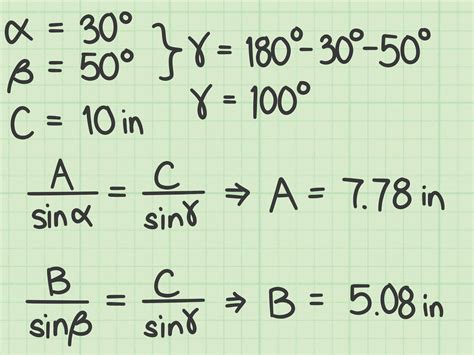 α = 30°
β = 50°
γ = 180°-30°-50°
γ = 100°
C = 10 in
A/sinα = C/sinγ ⇒ A = 7.78 in
B/sinβ = C/sinγ ⇒ B = 5.08 in